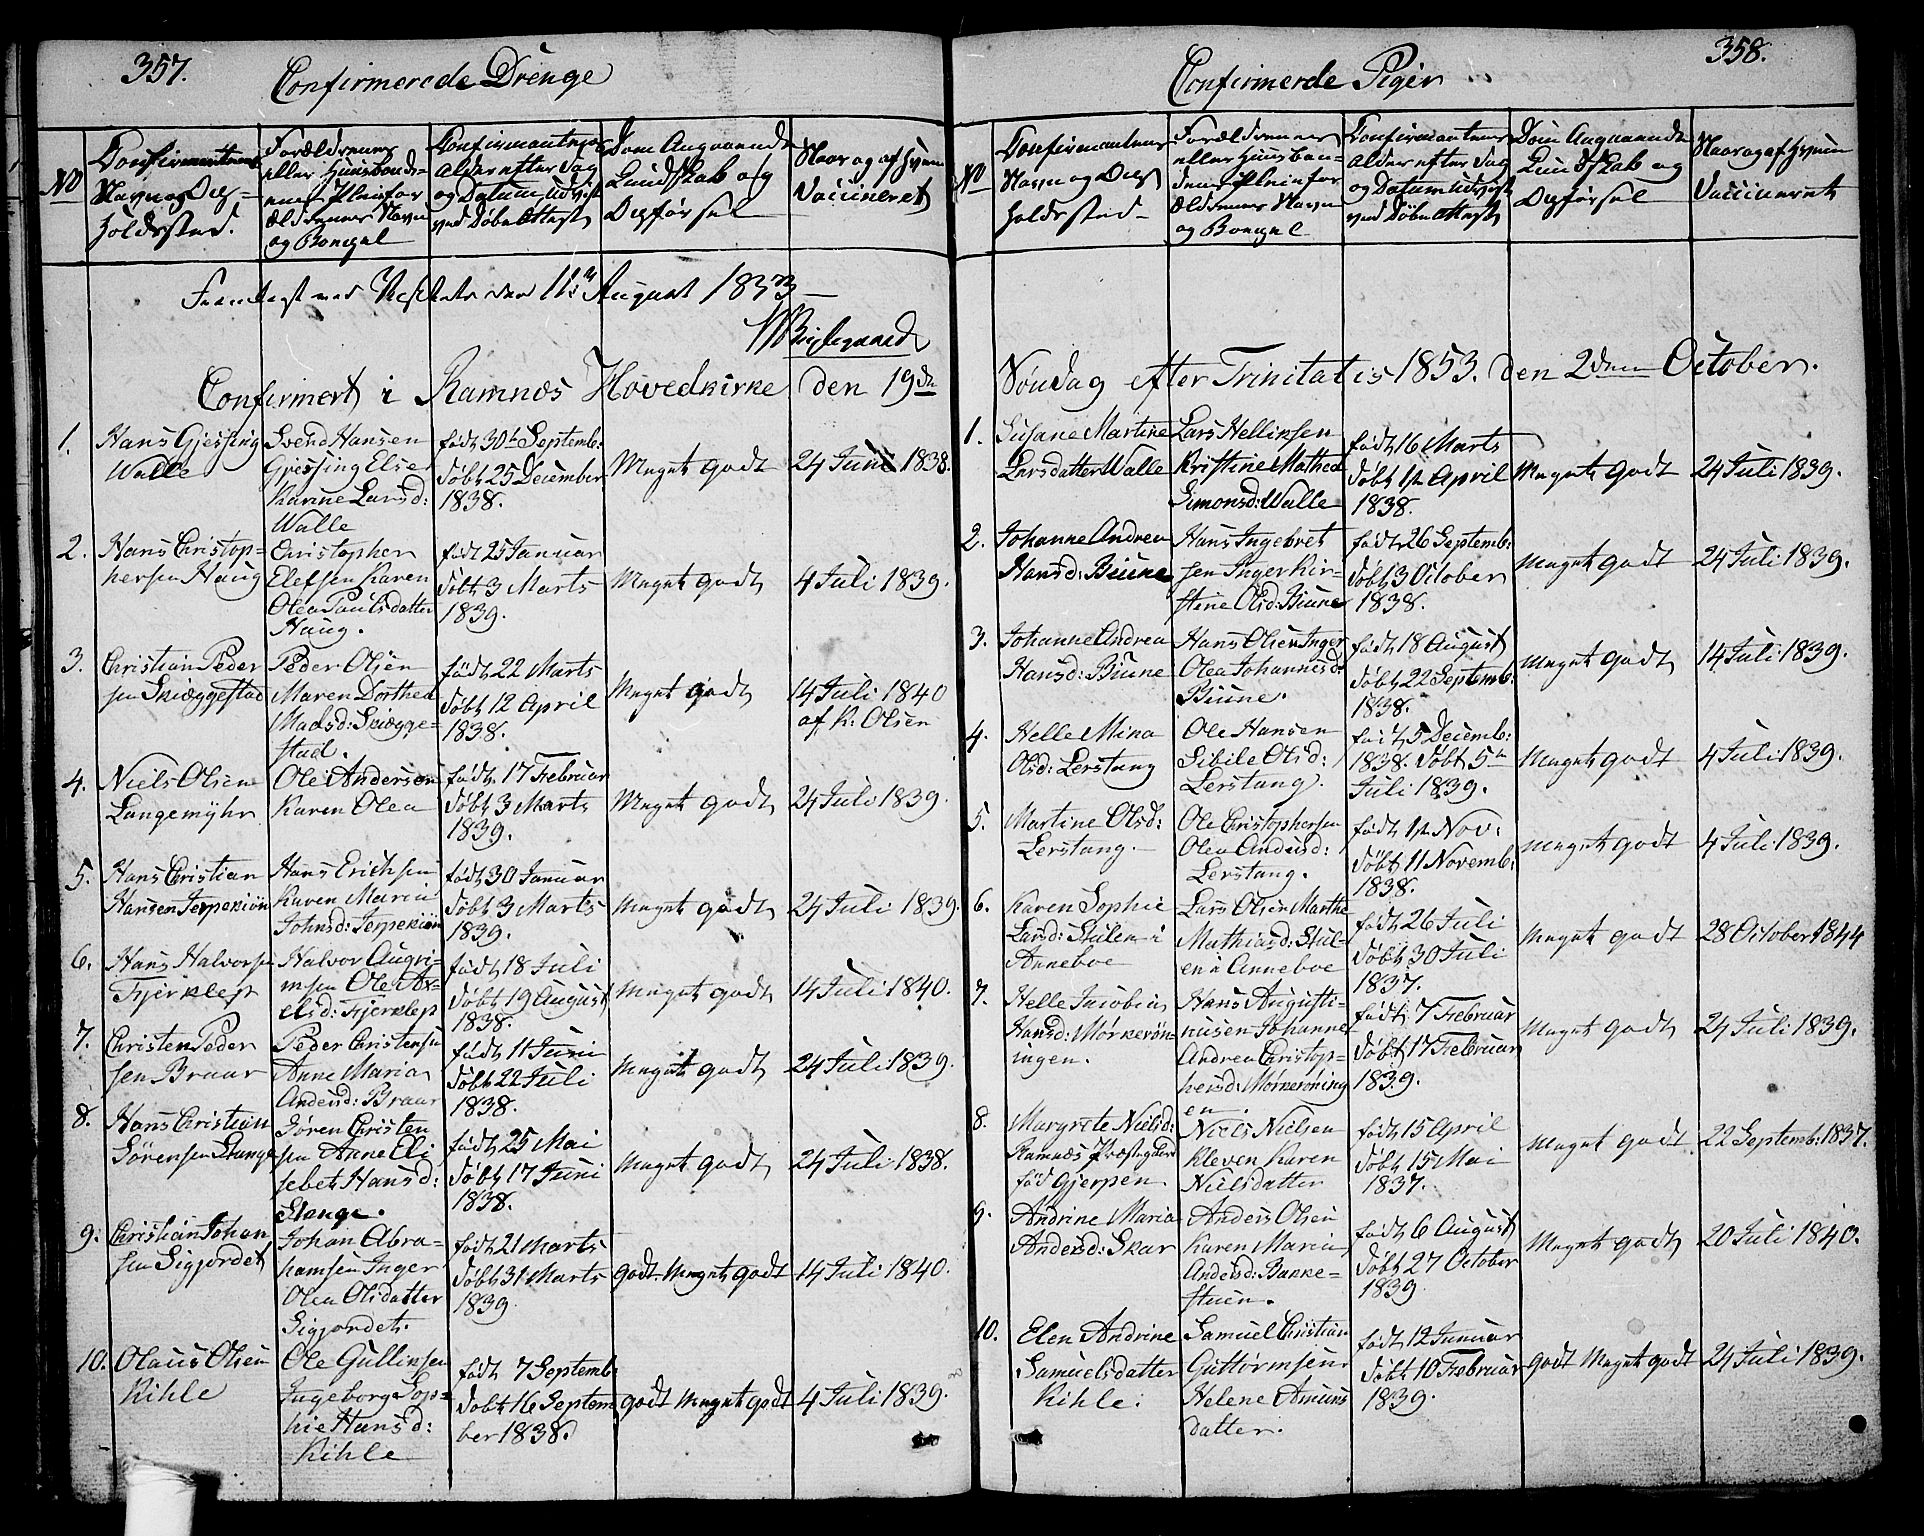 357.
Confirmerede Drenge
No
Confirmantens
Navn og Op-
holdssted.
Forældrenes
eller Huusbonde-
og Bopæl
Confirmantens
Alder efter Dag
og Datum udvist
ved Døbe Attest
Dom Angaaende
Kundskab og
Opførsel
Naar og af hvem
Vaccineret
Fremlagt ved Visitats den 11 August 1853
Confirmert i Ramnæs Hovedkirke den 19de
1.
Hans Gjessing
Walle
Svend Hansen
Gjessing Else
Karine Larsd:
Walle
født 30te Septemb:
døbt 25 December
1838.
Meget godt
24 Juni 1838.
2.
Hans Christop-
hersen Haug
Christopher
Elefsen Karen
Olea Paulsdatter
Haug.
født 25 Januar
døbt 3 Marts
1839.
Meget godt
4 Juli 1839.
3.
Christian Peder
sen Skiæggestad
Peder Olsen
Maren Dorthea
Madsd: Skiægge-
stad.
født 22 Marts
døbt 12 April
1838.
Meget godt
14 Juli 1840
af K. Olsen
4.
Niels Olsen
Langemyhr
Ole Andersen
Karen Olea
født 17 Februar
døbt 3 Marts
1839.
Meget godt
24 Juli 1839.
5.
Hans Christian
Hansen Jerpekiøn
Hans Erichsen
Karen Maria
Johnsd: Jerpekiøn
født 30 Januar
døbt 3 Marts
1839.
Meget godt
24 Juli 1839
6.
Hans Halvorsen
Fjerklep
Halvor Augri-
msen Ole Ax-
elsd: Fjerklep
født 18 Juli
døbt 19 August
1838.
Meget godt
14 Juli 1840.
7.
Christen Peder
sen Braar
Peder Christensen
Anne Maria
Andersd: Braar
født 11 Juni
døbt 22 Juli
1838.
Meget godt
24 Juli 1839.
8.
Hans Christian
Sørensen Stange
Søren Christen
sen Anne Eli
sebet Hansd:
Stange.
født 25 Mai
døbt 17 Juni
1838.
Meget godt
24 Juli 1838.
9.
Christian Johan
sen Sigjordet
Johan Abra-
hamsen Inger
Olea Olsdatter
Sigjordet.
født 21 Marts
døbt 31 Marts
1839
godt Meget godt
14 Juli 1840.
10.
Olaus Olsen
Kihle
Ole Gullixsen
Ingeborg Sop-
hie Hansd:
Kihle
født 7 Septemb
døbt 16 Septem
ber 1838.
godt Meget godt
4 Juli 1839.
358.
Confirmerde Piger
No
Confirmantens
Navn og Op-
holdssted
Forældrenes
eller Huusbon-
og Bopæl
Confirmantens
Alder efter Dag
og Datum udvist
ved Døbe Attest
Dom Angaaende
Kundskab og
Opførsel
Naar og af hvem
Vaccineret
Søndag efter Trinitatis 1853. den 2den October.
1.
Susane Martine
Larsdatter Walle
Lars Hellixsen
Kristine Mathea
Simonsd: Walle
født 16 Marts
døbt 1te April
1838.
Meget godt
24 Juli 1839.
2.
Johanne Andrea
Hansd: Biune
Hans Ingebret
sen Inger Kir-
stine Olsd: Biune
født 26 Septemb:
døbt 3 October
1838.
Meget godt
24 Juli 1839.
3.
Johanne Andrea
Hansd: Biune
Hans Olsen Inger
Olea Johannesd:
Biune.
født 18 August
døbt 22 Septemb:
1838.
Meget godt
14 Juli 1839.
4.
Helle Mina
Olsd: Lerstang
Ole Hansen
Sibile Olsd:
Lerstang.
født 5 Decemb:
1838. døbt 5te
Juli 1839.
Meget godt
4 Juli 1839.
5.
Martine Olsd:
Lerstang.
Ole Christophersen
Olea Andersd:
Lerstang.
født 1te Nov:
døbt 11 Novemb:
1838.
Meget godt
4 Juli 1839.
6.
Karen Sophie
Larsd: Stulen i
Anneboe
Lars Olsen Marthe
Mathiasd: Stul-
en i Anneboe
født 26 Juli
døbt 30 Juli
1837.
Meget godt
28 October 1844
7.
Helle Jacobin
Hansd: Mørkerøn-
ningen.
Hans Augusti-
nusen Johanne
Andrea Christop-
hersd: Mørkerøning
en.
født 7 Februar
døbt 17 Februar
1839.
Meget godt
24 Juli 1839.
8.
Margrete Nielsd:
Ramnæs Præstegaard
fød Gjerpen.
Niels Nielsen
Kleven Karen
Nielsdatter
født 15 April
døbt 15 Mai
1837.
Meget godt
22 Septemb: 1837.
9.
Andrine Maria
Andersd: Skar
Anders Olsen
Karen Maria
Andersd: Bakke-
stuen.
født 6 August
døbt 27 October
1839
Meget godt
20 Juli 1840.
10.
Elen Andrine
Samuelsdatter
Kihle.
Samuel Christian
Guttormsen
Helene Amuns
datter.
født 12 Januar
døbt 10 Februar
1839.
godt Meget godt
24 Juli 1839.